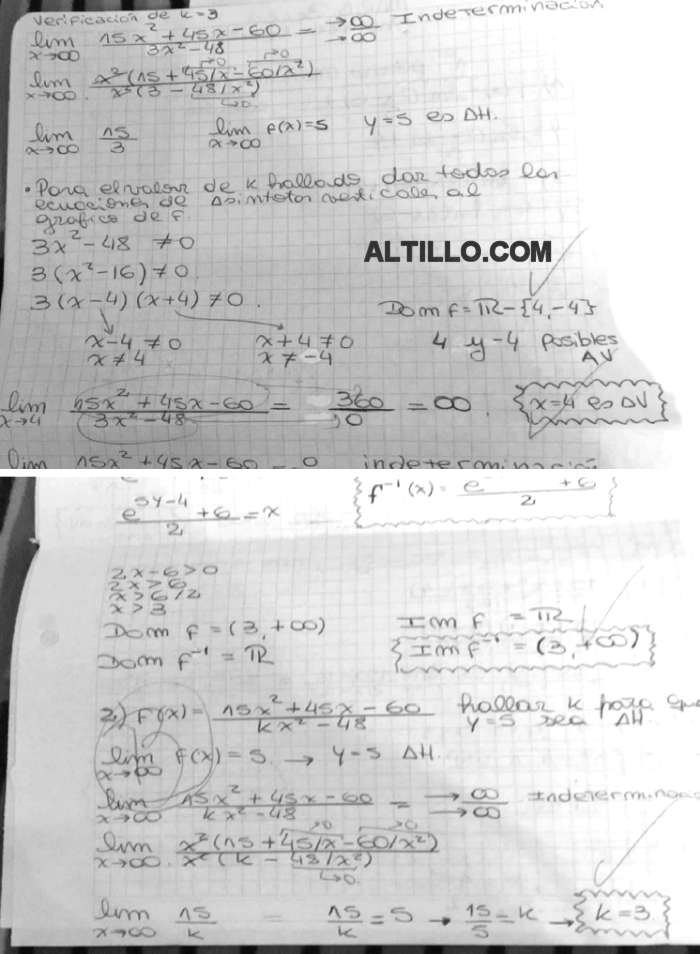 Verificación de k=3
lim x→∞ 15x² + 45x - 60 / 3x² - 48 = →∞ / →∞ Indeterminación
lim x→∞ x²(15 + 45/x - 60/x²) / x²(3 - 48/x²) →0 →0 ↳0
lim x→∞ 15/3 lim x→∞ f(x)=5 y=5 es AH.
• Para el valor de k hallado dar todas las
ecuaciones de Asíntotas verticales al
grafico de f.
3x² - 48 ≠ 0
3(x² - 16) ≠ 0
ALTILLO.COM
3(x-4)(x+4) ≠ 0.
Dom f = ℝ - {4, -4}
x-4 ≠ 0 x+4 ≠ 0 4 y -4 posibles
x ≠ 4 x ≠ -4 AV
lim x→4 15x² + 45x - 60 / 3x² - 48 = 360 / 0 = ∞ x=4 es AV
lim 15x² + 45x - 60 0
e^5y-4 + 6 / 2 = x f⁻¹(x) = e + 6 / 2
2x - 6 > 0
2x > 6
x > 6/2
x > 3
Dom f = (3, +∞) Im f = ℝ
Dom f⁻¹ = ℝ Im f⁻¹ = (3, +∞)
2) f(x) = 15x² + 45x - 60 / kx² - 48 hallar k para que
y=5 sea AH
lim x→∞ f(x) = 5 → y=5 AH.
lim x→∞ 15x² + 45x - 60 / kx² - 48 = →∞ / →∞
lim x→∞ x²(15 + 45/x - 60/x²) / x²(k - 48/x²) →0 →0 ↳0
lim x→∞ 15/k = 15/k = 5 → 15/5 = k → k=3